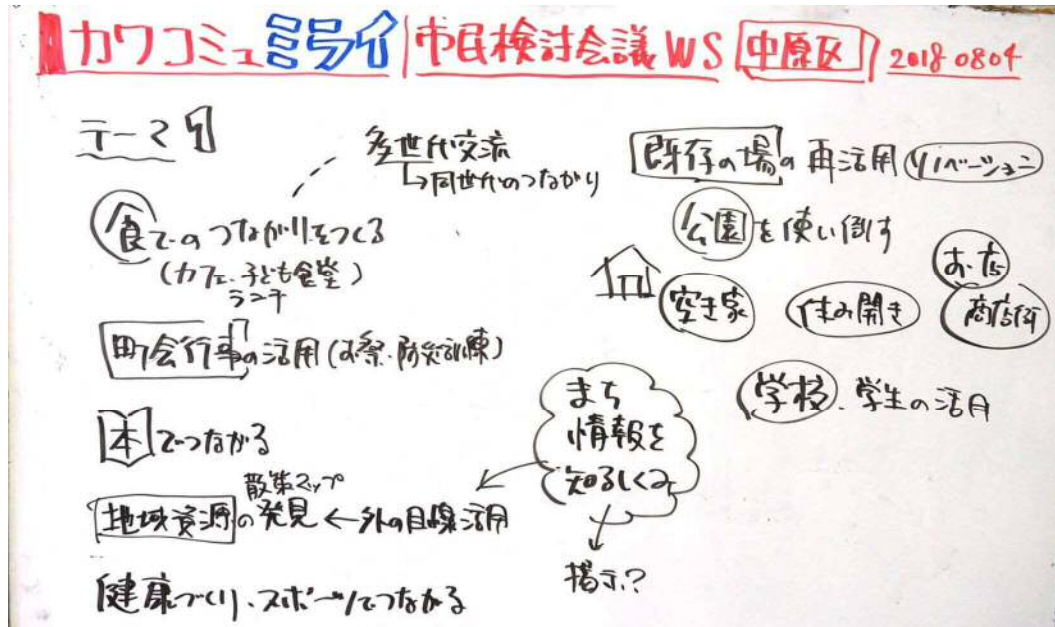 カワコミュミライ 市民検討会議WS 中原区 2018 0804
テーマ
多世代交流
↳同世代のつながり
食でのつながりをつくる
(カフェ・子ども食堂)
ランチ
町会行事の活用(お祭・防災訓練)
本でつながる
散策マップ
地域資源の発見←外の目線活用
健康づくり、スポーツでつながる
まち
情報を
知るしくみ
掲示?
既存の場の再活用 リノベーション
公園を使い倒す
空き家 住み開き
お店
商店街
学校、学生の活用